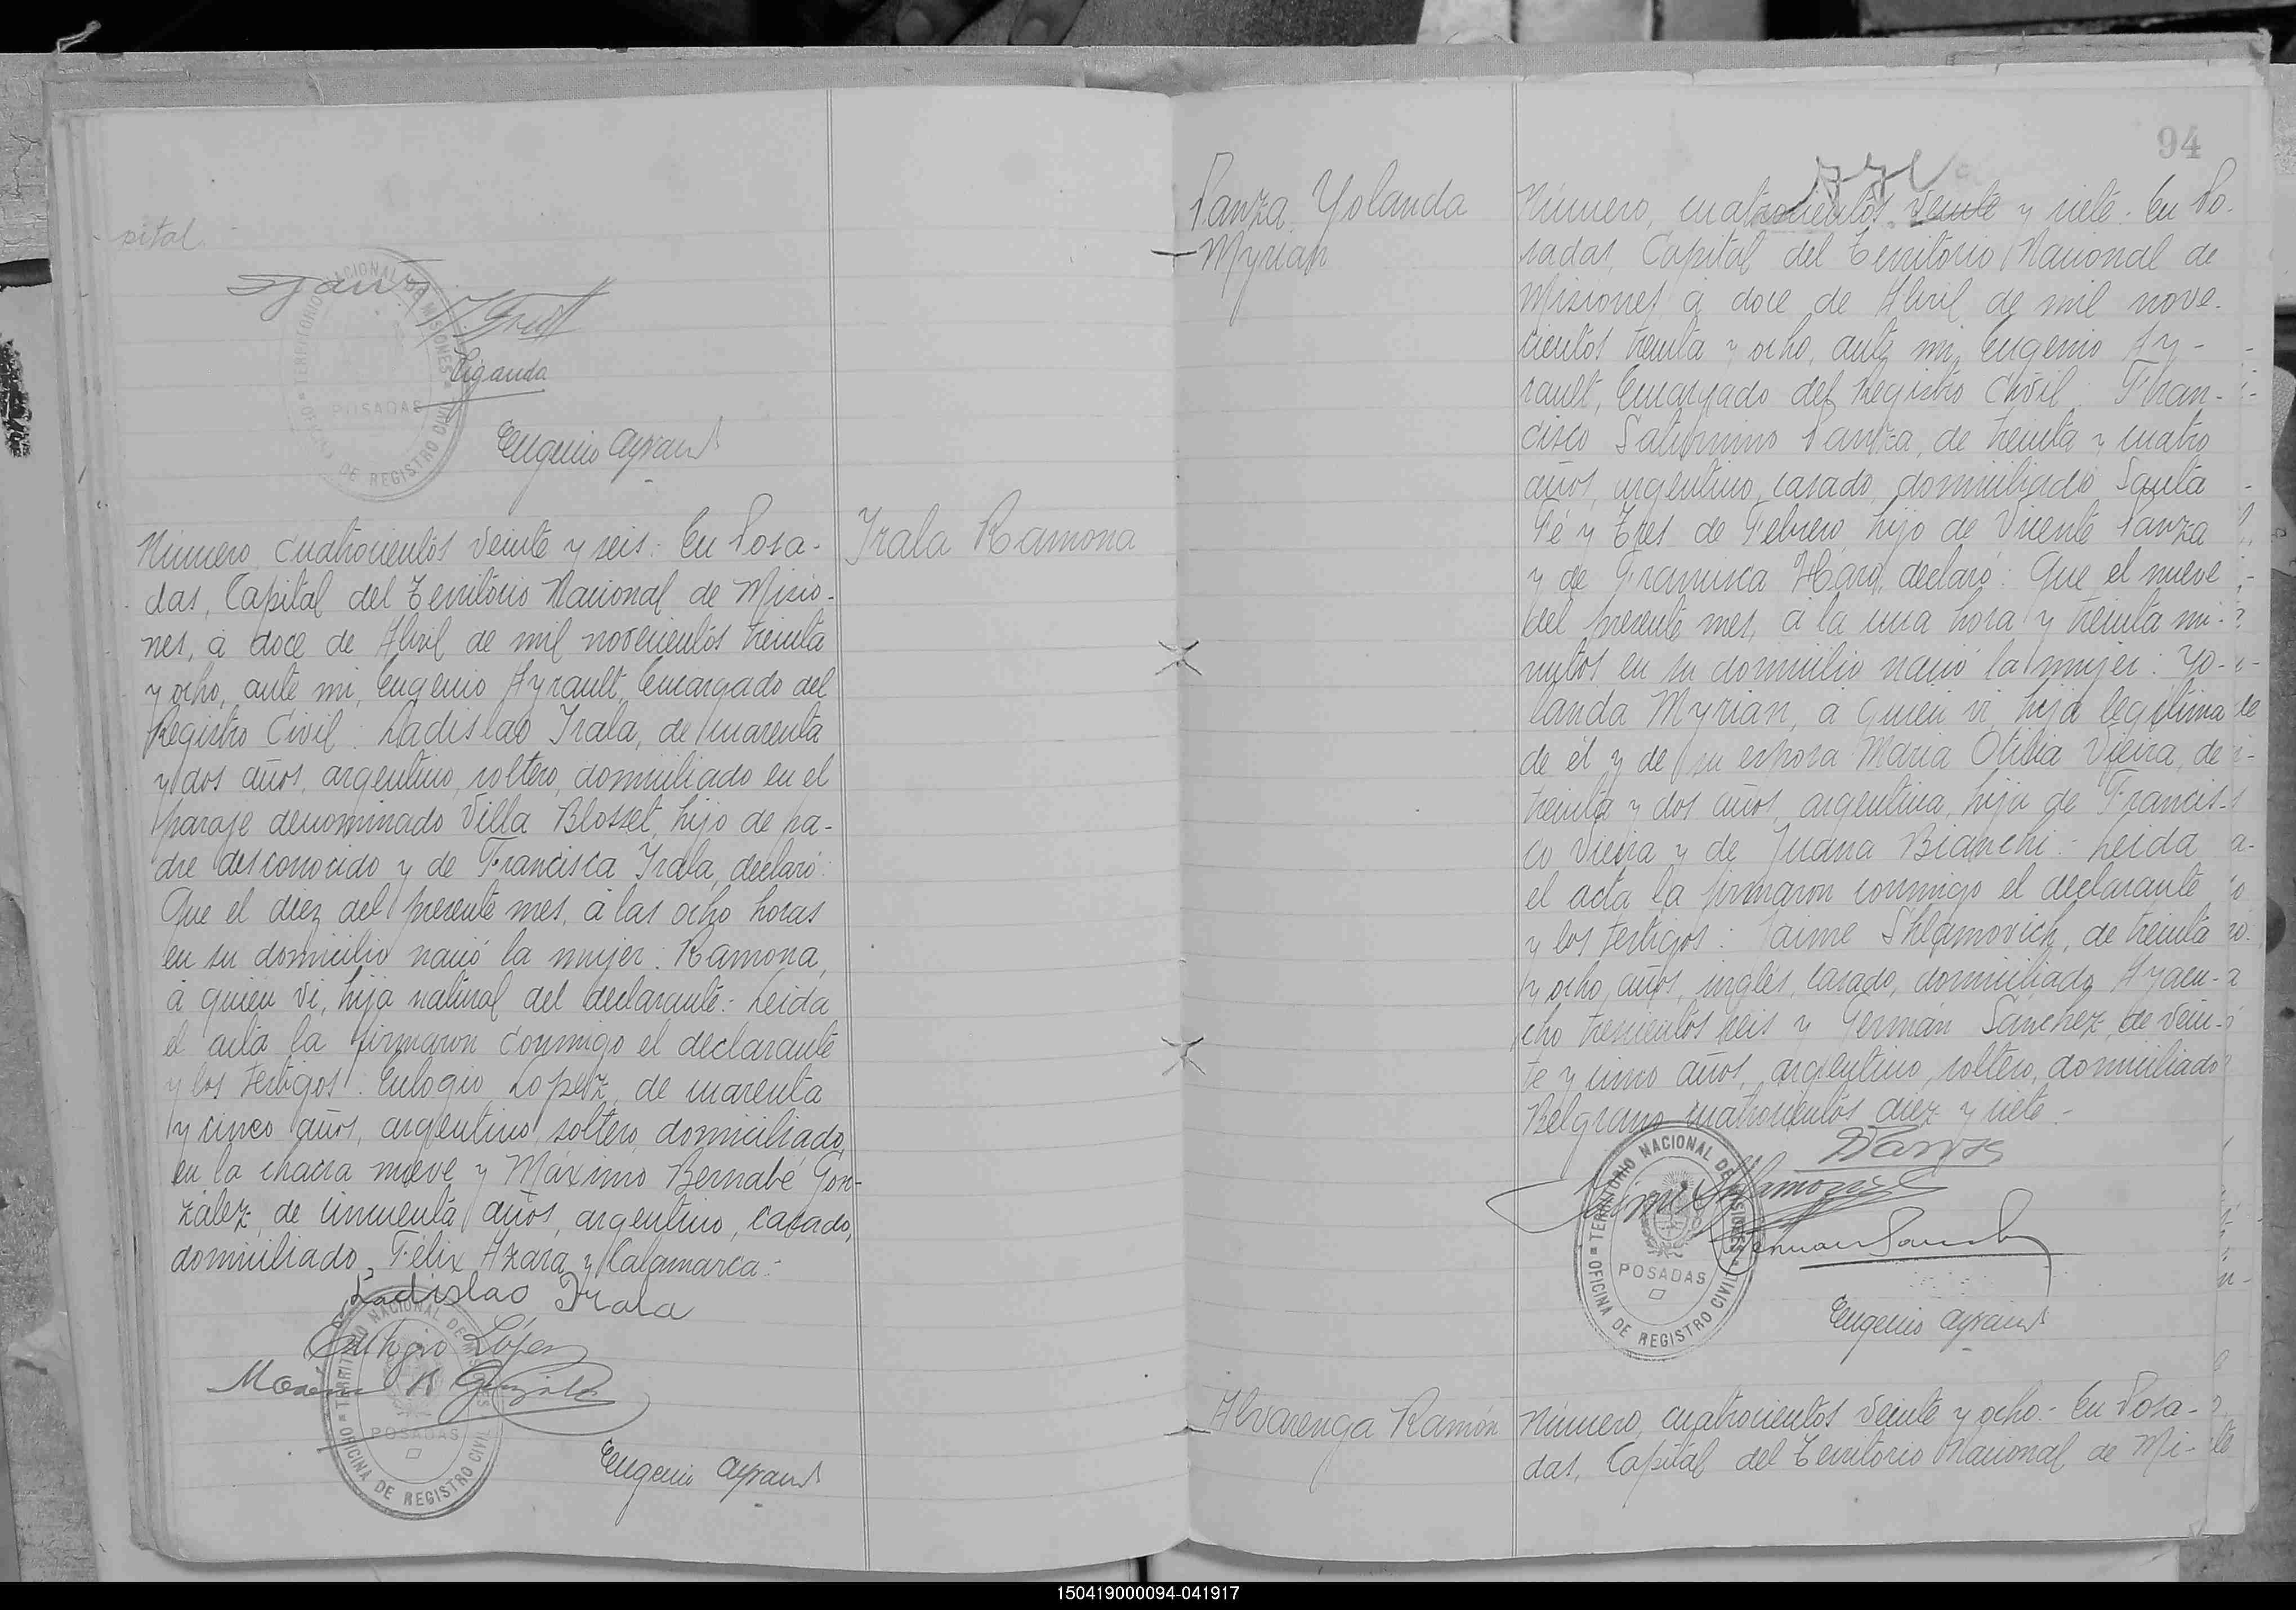 pital.
Eugenio Ayrault
TERRITORIO NACIONAL DE MISIONES
POSADAS
OFICINA DE REGISTRO CIVIL
Irala Ramona
Número, cuatrocientos veinte y seis.- En Posa-
das, Capital del Territorio Nacional de Misio-
nes, á doce de Abril de mil novecientos treinta
y ocho, ante mi, Eugenio Ayrault, Encargado del
Registro Civil: Ladislao Irala, de cuarenta
y dos años, argentino, soltero, domiciliado en el
paraje denominado Villa Blosset, hijo de pa-
dre desconocido y de Francisca Irala, declaró:
Que el diez del presente mes, á las ocho horas
en su domicilio nació la mujer: Ramona,
á quien vi, hija natural del declarante.- Leida
el acta la firmaron conmigo el declarante
y los testigos: Eulogio Lopez, de cuarenta
y cinco años, argentino, soltero, domiciliado,
en la chacra nueve y Máximo Bernabé Gon-
zález, de cincuenta años, argentino, casado,
domiciliado, Félix Azara y Catamarca.-
Ladislao Irala
Eulogio López
Maximo B González
TERRITORIO NACIONAL DE MISIONES
POSADAS
OFICINA DE REGISTRO CIVIL
Eugenio Ayrault
94
Panza Yolanda
Myrian
Número, cuatrocientos veinte y siete.- En Po-
sadas, Capital del Territorio Nacional de
Misiones á doce de Abril de mil nove-
cientos treinta y ocho, ante mi, Eugenio Ay-
rault, Encargado del Registro Civil: Fran-
cisco Saturnino Panza, de treinta y cuatro
años, argentino, casado, domiciliado Santa
Fé y Tres de Febrero, hijo de Vicente Panza
y de Francisca Haro, declaró: Que el nueve
del presente mes, á la una hora y treinta mi-
nutos en su domicilio nació la mujer: Yo-
landa Myrian, á quien vi, hija legítima
de él y de su esposa Maria Otilia Vieira, de
treinta y dos años, argentina, hija de Francis-
co Vieira y de Juana Bianchi.- Leida
el acta la firmaron conmigo el declarante
y los testigos: Jaime Shlamovich, de treinta
y ocho, años, inglés, casado, domiciliado Ayacu-
cho trescientos seis y Germán Sánchez, de vein-
te y cinco años, argentino, soltero, domiciliado
Belgrano cuatrocientos diez y siete.-
Panza
Jaime Shlamovich
German Sanchez
TERRITORIO NACIONAL DE MISIONES
POSADAS
OFICINA DE REGISTRO CIVIL
Eugenio Ayrault
Alvarenga Ramón
Número, cuatrocientos veinte y ocho.- En Posa-
das, Capital del Territorio Nacional de Mi-
150419000094-041917